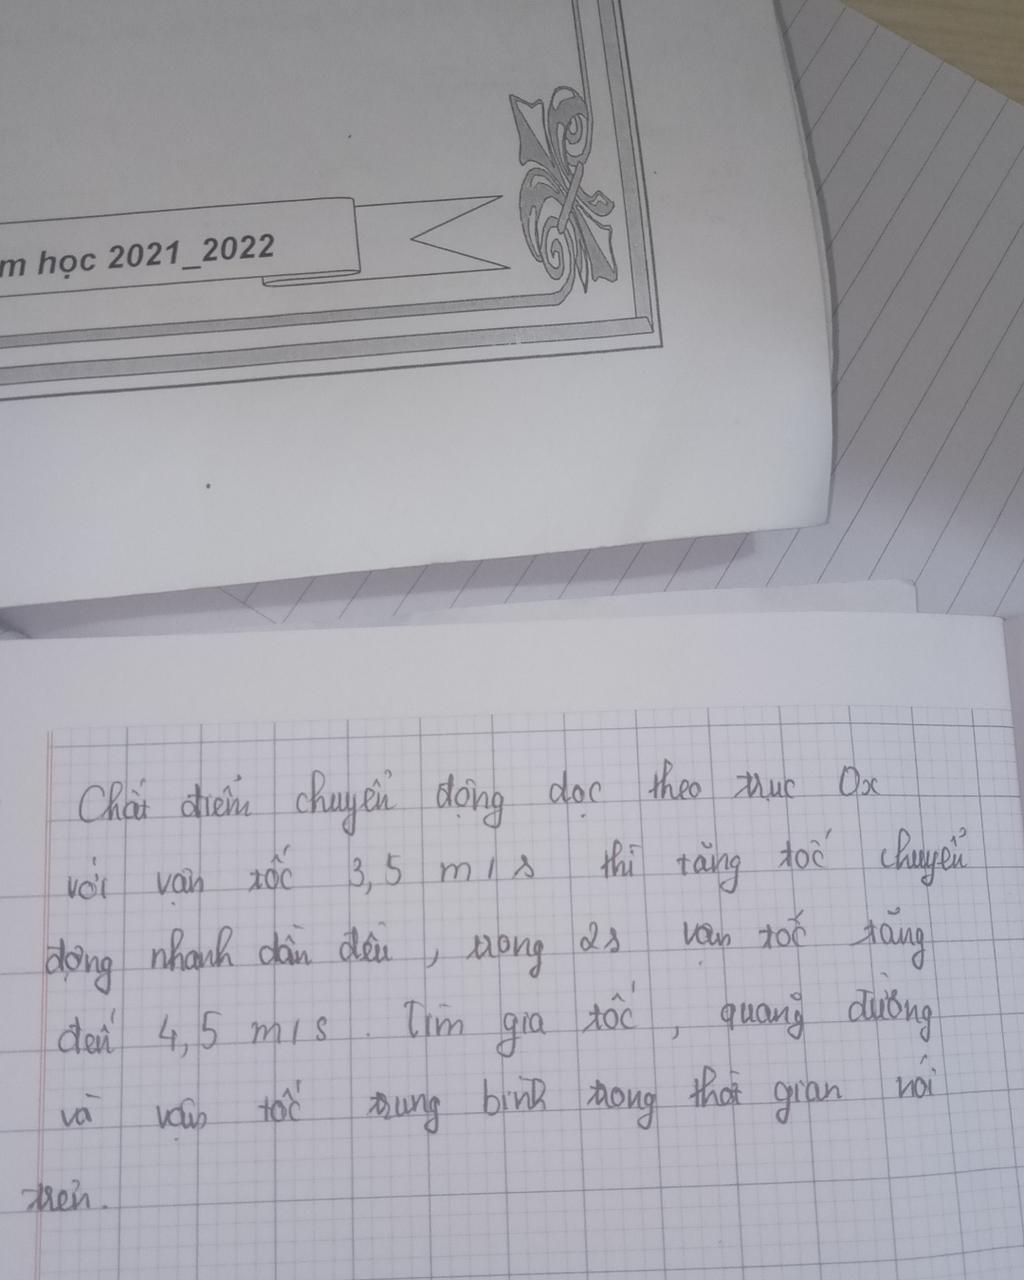 m học 2021_2022
Chất điểm chuyển động dọc theo trục Ox
với vận tốc 3,5 m/s thì tăng tốc chuyển
động nhanh dần đều, trong 2s vận tốc tăng
đến 4,5 m/s. Tìm gia tốc, quãng đường
và vận tốc trung bình trong thời gian nói
trên.